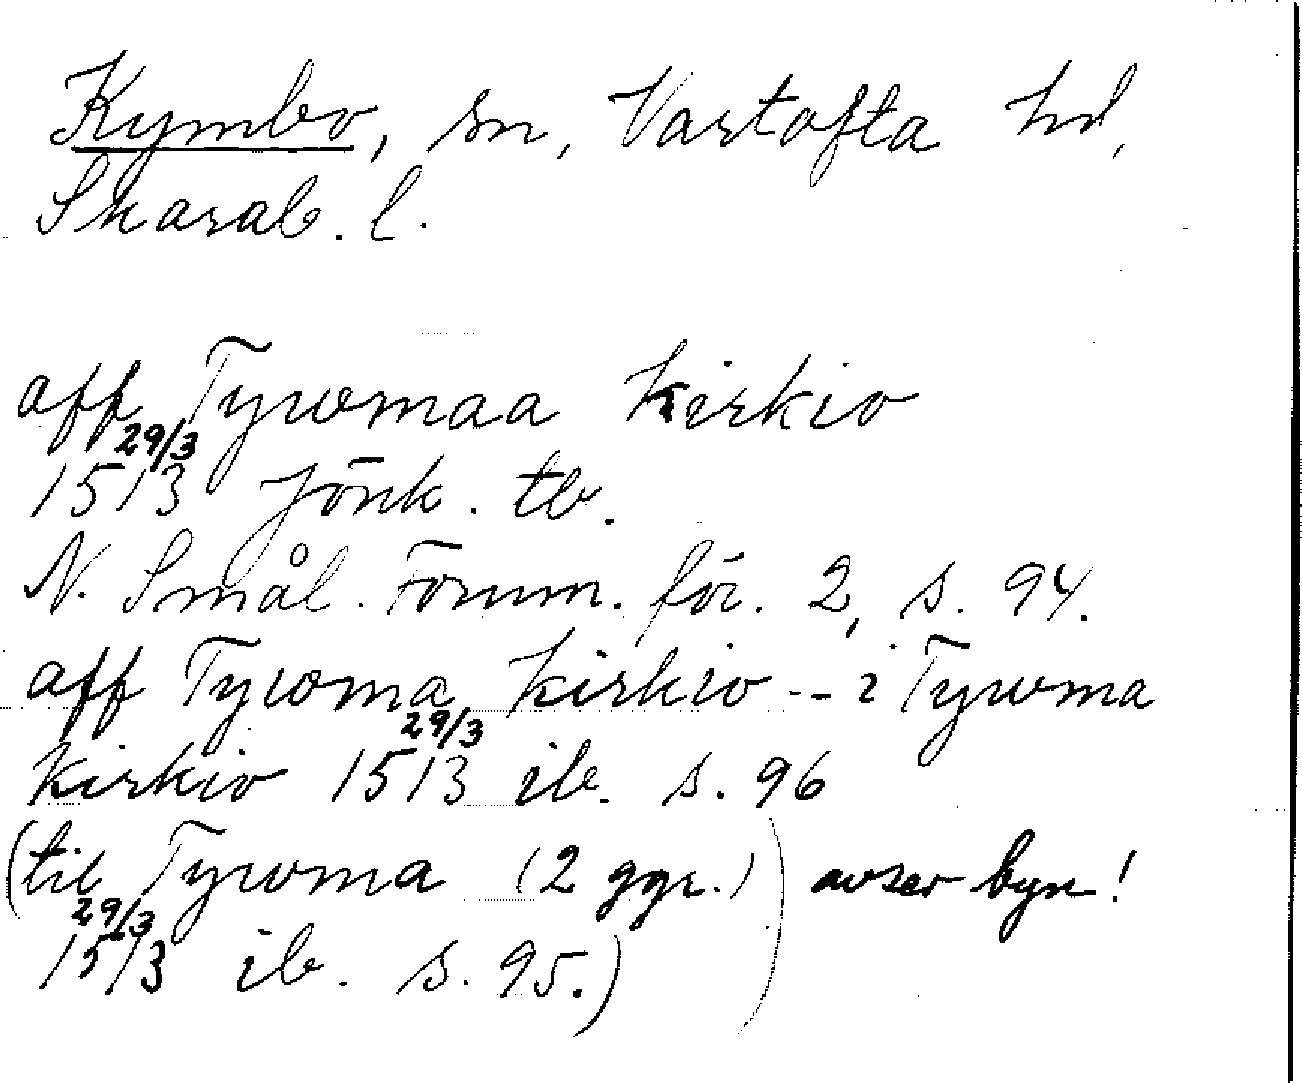 Kymbo, sn, Vartofta hd,
Skarab. l.
aff Tywomaa kirkio
29/3
1513 Jönk. tb.
N. Smål. Fornm. för. 2, s. 94.
aff Tywoma kirkio -- i Tywoma
29/3
kirkio 1513 ib. s. 96
(til Tywoma (2 ggr.) ) avser byn!
29/3
1513 ib. s. 95.)